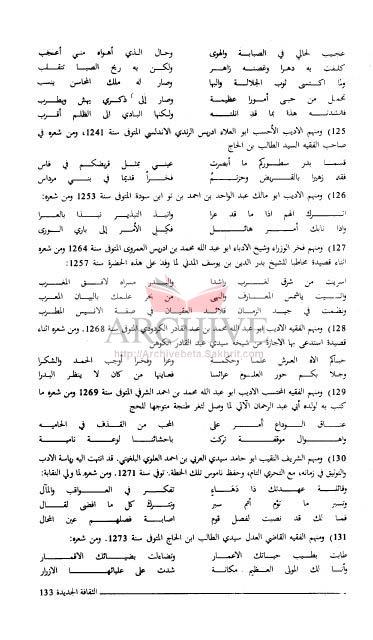 عجيب لحالي في الصبابة والهوى وحال الذي أهواه مني أعجب
كلفت به دهرا وغصنه زاهر ولكن به ريح الصبا تتقلب
ولما اكتسى ثوب الجلالة والبها وصار له ملك المحاسن ينسب
تحمل من حبي أمورا عظيمة وصار إلى ذكري يهش ويطرب
فأنشدته هذا بما قد انلته ولكنها البادي الى الظلم أقرب
(125) ومنهم الاديب الأحسب ابو العلاء ادريس الرندي الاندلسي المتوفى سنة 1241، ومن شعره في
صاحب الفقيه السيد الطالب بن الحاج
قسما بدر سطوركم ما أبصرت عيني بمثل قريضكم في فاس
فقد زهيرا بالقريض وحزتم فخرا قديما في بني مرداس
(126) ومنهم الاديب ابو مالك عبد الواحد بن احمد بن سنة 1253 ومن شعره
اترك الهم اذا ما قد عرا وانبذ التبذير نبذا بالعرا
واذا نابك أمر هائل فكل الأمر إلى باري الورى
(127) ومنهم فخر الوزراء وشيخ الادباء ابو عبد الله محمد بن ادريس العمروي المتوفى سنة 1264 ومن شعره
اثناء قصيدة مخاطبا للشيخ بدر الدين بن يوسف المدني لما وفد على هذه الحضرة سنة 1257:
اسريت من شرق لغرب راشدا والبدر مسراه لافق المغرب
واتسيت بالشمس المعارف والهدى من بحر علمك بالبيان المعرب
ونظمت في جيد الزمان قلائد العقيان في صفة الانيس المطرب
ARCHIVE
http://Archivebeta.Sakhrit.com
(128) ومنهم الفقيه الاديب ابو عبد الله محمد بن عبد القادر الكردودي المتوفى سنة 1268. ومن شعره اثناء
قصيدة استدعى بها الاجازة من شيخه سيدي عبد القادر الكوهن
حباكم الاه العرش علما وحكمة وعزا وفخرا أوجب الحمد والشكرا
وحلا بكم حور العلوم عرائسا فعاينها من كان لا ينظر البدرا
(129) ومنهم الفقيه المحتسب الاديب ابو عبد الله محمد بن احمد الشرفي المتوفى سنة 1269 ومن شعره ما
كتب به لولده أبي عبد الرحمان الآتي لما وصل لثغر طنجة متوجها للحج
عناق الوداع أمر على المحب من القذف في الحاميه
واهوال موقفه تركت باحشائنا لوعة ناميه
(130) ومنهم الشريف النقيب ابو حامد سيدي العربي بن احمد العلوي البلغيثي. قد انتهت اليه رياسة الادب
والتوثيق في زمانه، مع التحري التام، وحفظ ناموس تلك الخطة. توفي سنة 1271. ومن شعره لما ولي النقابة:
وقائلة عهدتك ذا دهاء تفكر في العواقب والمآل
وتسبر ما تؤم أتم سبر وتترك كل ما افضى لقال
فما لك قد نصبت لفصل قوم اصابة فصلهم عين المحال
(131) ومنهم الفقيه القاضي العدل سيدي الطالب ابن الحاج المتوفى سنة 1273. ومن شعره:
طابت بطيب حياتك الاعمار وتضاءلت بضيائك الاقمار
وأنا لك المولى العظيم مكانة شدت على عليائها الازرار
الثقافة الجديدة 133